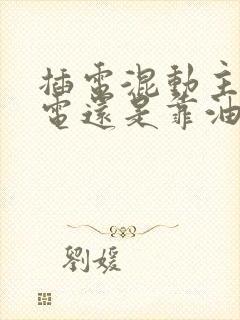 插電混動主
電還是靠油
劉媛